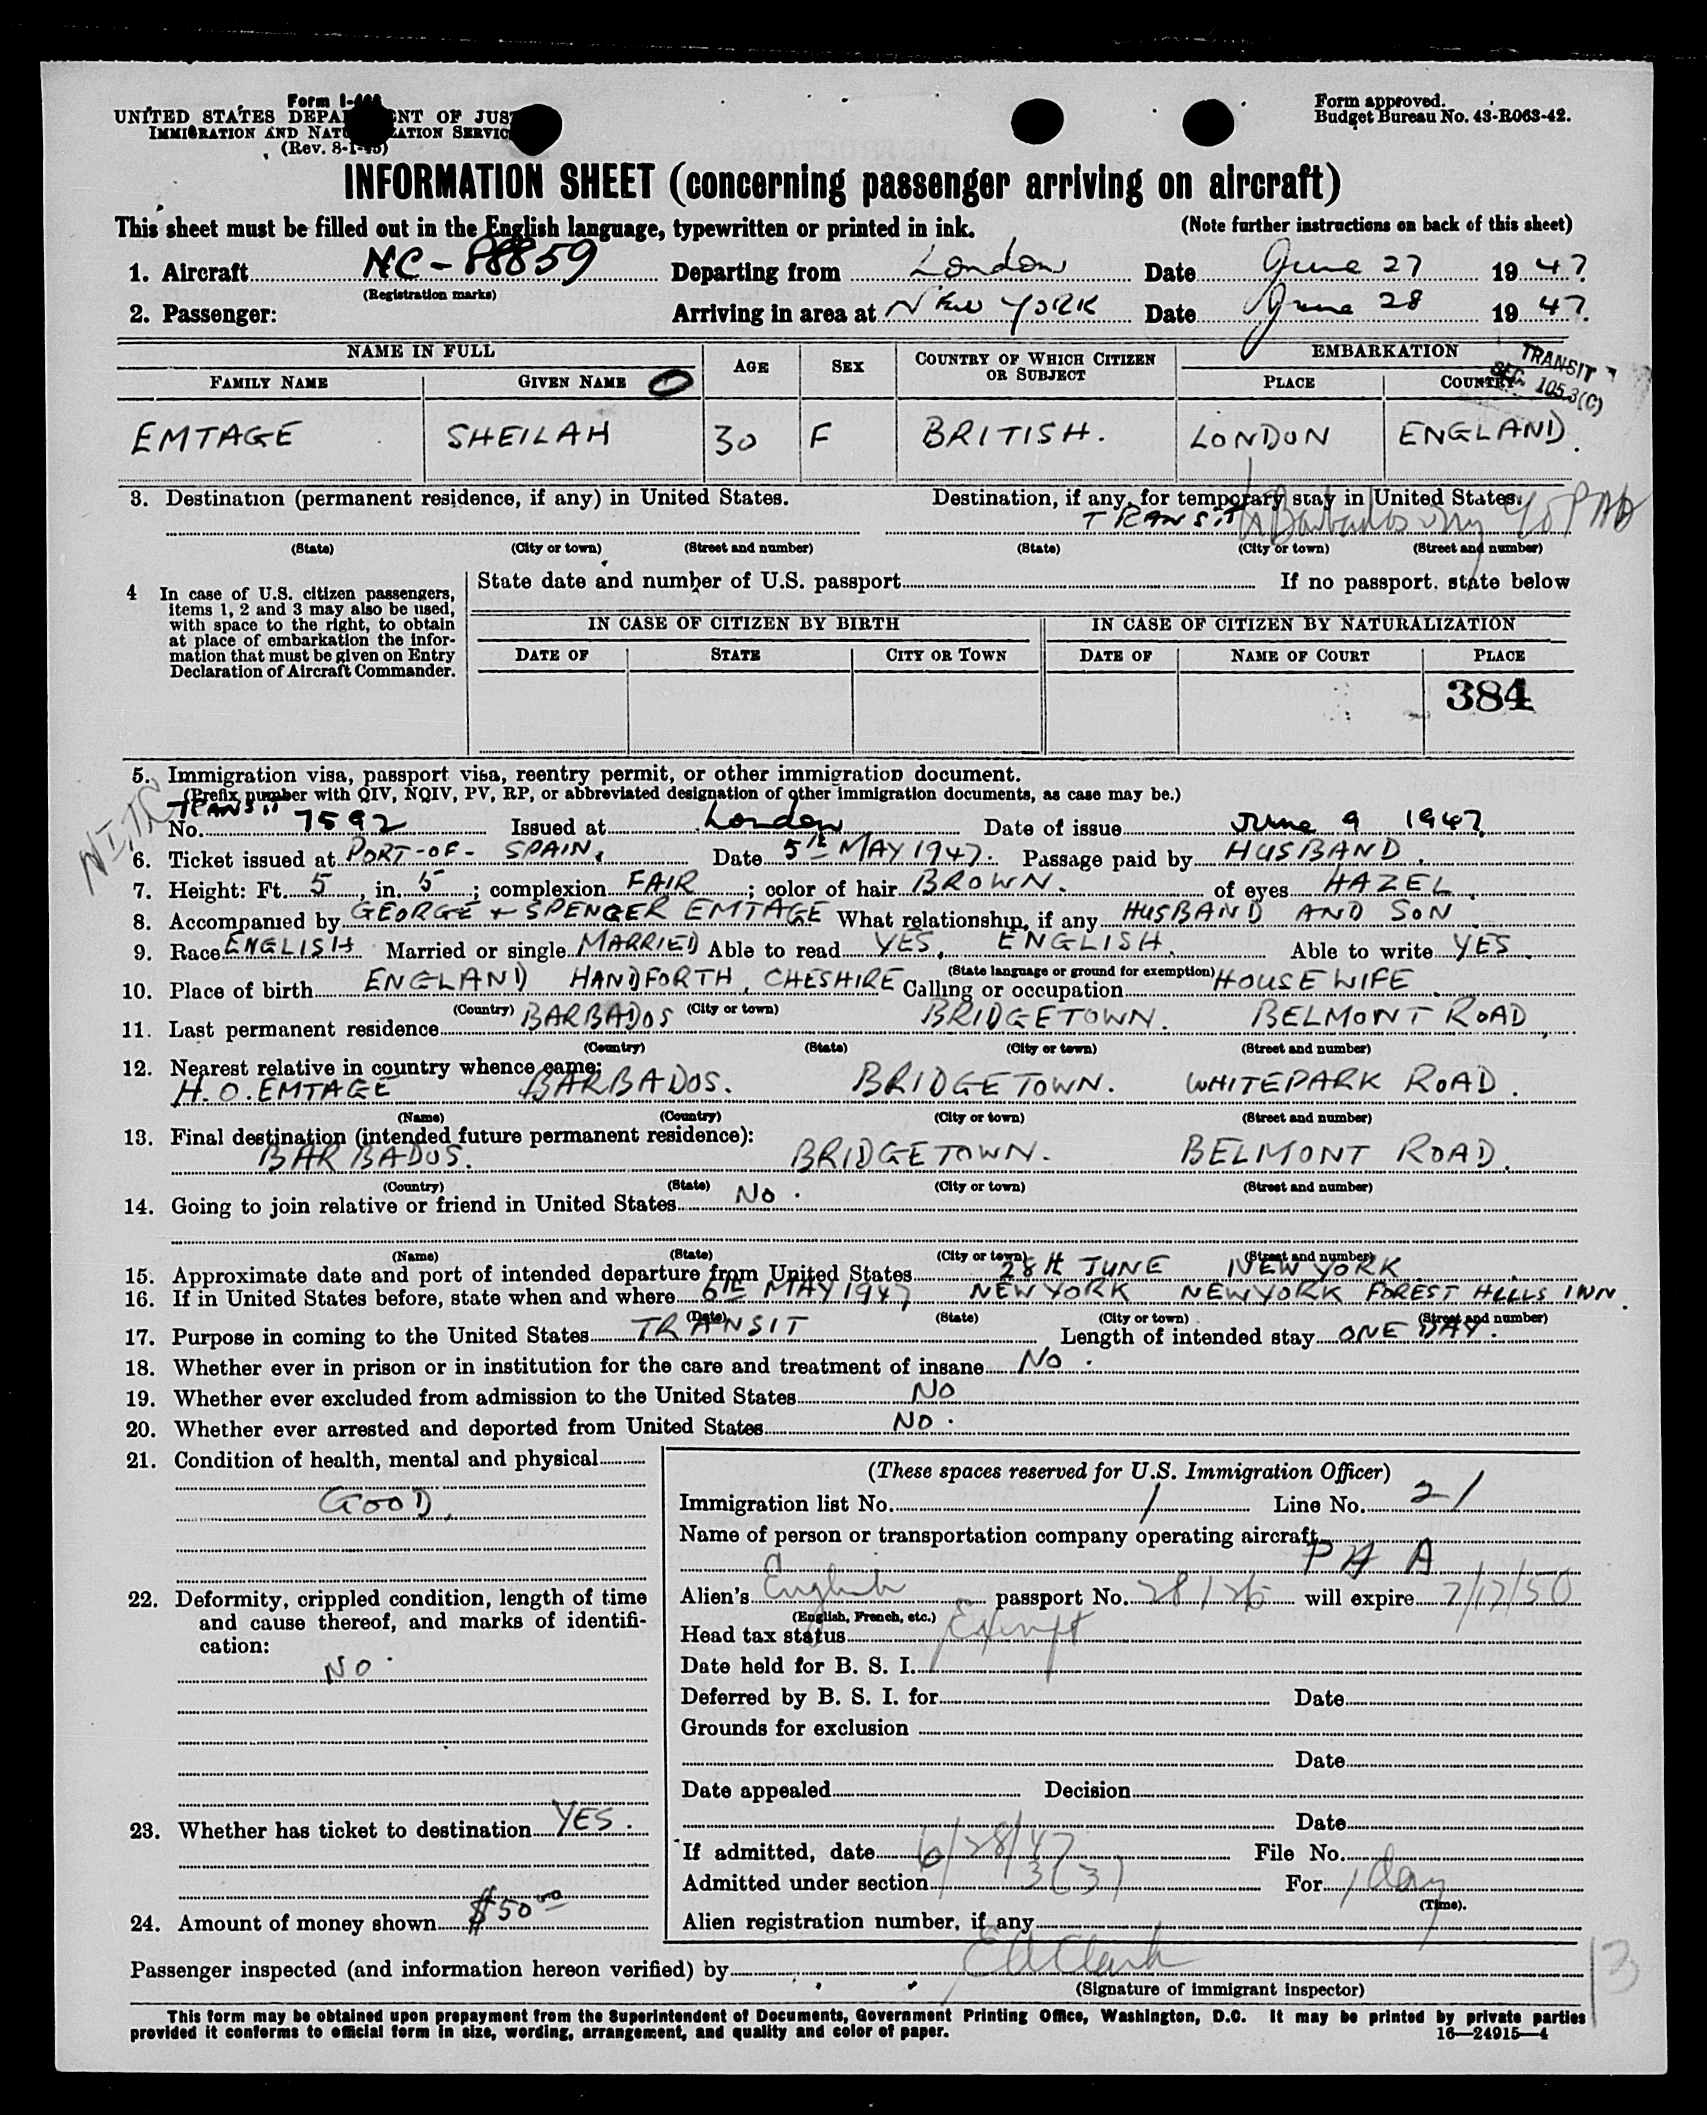 Form I-
UNITED STATES DEPA NT OF JUS
IMMIGRATION AND NATU ATION SERVIC
(Rev. 8-1-45)
Form approved.
Budget Bureau No. 43-R063-42.
INFORMATION SHEET (concerning passenger arriving on aircraft)
This sheet must be filled out in the English language, typewritten or printed in ink. (Note further instructions on back of this sheet)
1. Aircraft NC-88859 Departing from London Date June 27 1947.
(Registration marks)
2. Passenger: Arriving in area at New York Date June 28 1947.
NAME IN FULL AGE SEX COUNTRY OF WHICH CITIZEN OR SUBJECT EMBARKATION
FAMILY NAME GIVEN NAME PLACE COUNTRY
TRANSIT
SEC. 105.3(C)
EMTAGE SHEILAH 30 F BRITISH. LONDON ENGLAND.
3. Destination (permanent residence, if any) in United States. Destination, if any, for temporary stay in United States.
TRANSIT to Barbados
(State) (City or town) (Street and number) (State) (City or town) (Street and number)
4 In case of U.S. citizen passengers, items 1, 2 and 3 may also be used, with space to the right, to obtain at place of embarkation the information that must be given on Entry Declaration of Aircraft Commander.
State date and number of U.S. passport If no passport, state below
IN CASE OF CITIZEN BY BIRTH IN CASE OF CITIZEN BY NATURALIZATION
DATE OF STATE CITY OR TOWN DATE OF NAME OF COURT PLACE
384
5. Immigration visa, passport visa, reentry permit, or other immigration document.
(Prefix number with QIV, NQIV, PV, RP, or abbreviated designation of other immigration documents, as case may be.)
TRANSIT
No. 7592 Issued at London Date of issue June 9 1947
6. Ticket issued at PORT-OF-SPAIN. Date 5th MAY 1947. Passage paid by HUSBAND.
7. Height: Ft. 5, in. 5; complexion FAIR; color of hair BROWN. of eyes HAZEL.
8. Accompanied by GEORGE + SPENCER EMTAGE What relationship, if any HUSBAND AND SON
9. Race ENGLISH Married or single MARRIED Able to read YES, ENGLISH. Able to write YES.
(State language or ground for exemption)
10. Place of birth ENGLAND HANDFORTH, CHESHIRE Calling or occupation HOUSEWIFE
(Country) (City or town)
11. Last permanent residence BARBADOS BRIDGETOWN. BELMONT ROAD,
(Country) (State) (City or town) (Street and number)
12. Nearest relative in country whence came:
H. O. EMTAGE BARBADOS. BRIDGETOWN. WHITEPARK ROAD.
(Name) (Country) (City or town) (Street and number)
13. Final destination (intended future permanent residence):
BARBADOS. BRIDGETOWN. BELMONT ROAD.
(Country) (State) (City or town) (Street and number)
14. Going to join relative or friend in United States No.
(Name) (State) (City or town) (Street and number)
15. Approximate date and port of intended departure from United States 28th JUNE NEW YORK
16. If in United States before, state when and where 6th MAY 1947 NEW YORK NEW YORK FOREST HILLS INN.
(Date) (State) (City or town) (Street and number)
17. Purpose in coming to the United States TRANSIT Length of intended stay ONE DAY.
18. Whether ever in prison or in institution for the care and treatment of insane No.
19. Whether ever excluded from admission to the United States No
20. Whether ever arrested and deported from United States No.
21. Condition of health, mental and physical
GOOD.
22. Deformity, crippled condition, length of time and cause thereof, and marks of identification:
No.
23. Whether has ticket to destination YES.
24. Amount of money shown $50 00
(These spaces reserved for U.S. Immigration Officer)
Immigration list No. 1 Line No. 21
Name of person or transportation company operating aircraft
PAA
Alien's English passport No. 28126 will expire 7/17/50
(English, French, etc.)
Head tax status Exempt
Date held for B. S. I.
Deferred by B. S. I. for Date
Grounds for exclusion
Date
Date appealed Decision
Date
If admitted, date 6/28/47 File No.
Admitted under section 3(3) For 1 day
(Time).
Alien registration number, if any
Passenger inspected (and information hereon verified) by EA Clark
(Signature of immigrant inspector)
This form may be obtained upon prepayment from the Superintendent of Documents, Government Printing Office, Washington, D.C. It may be printed by private parties
provided it conforms to official form in size, wording, arrangement, and quality and color of paper. 16—24915—4